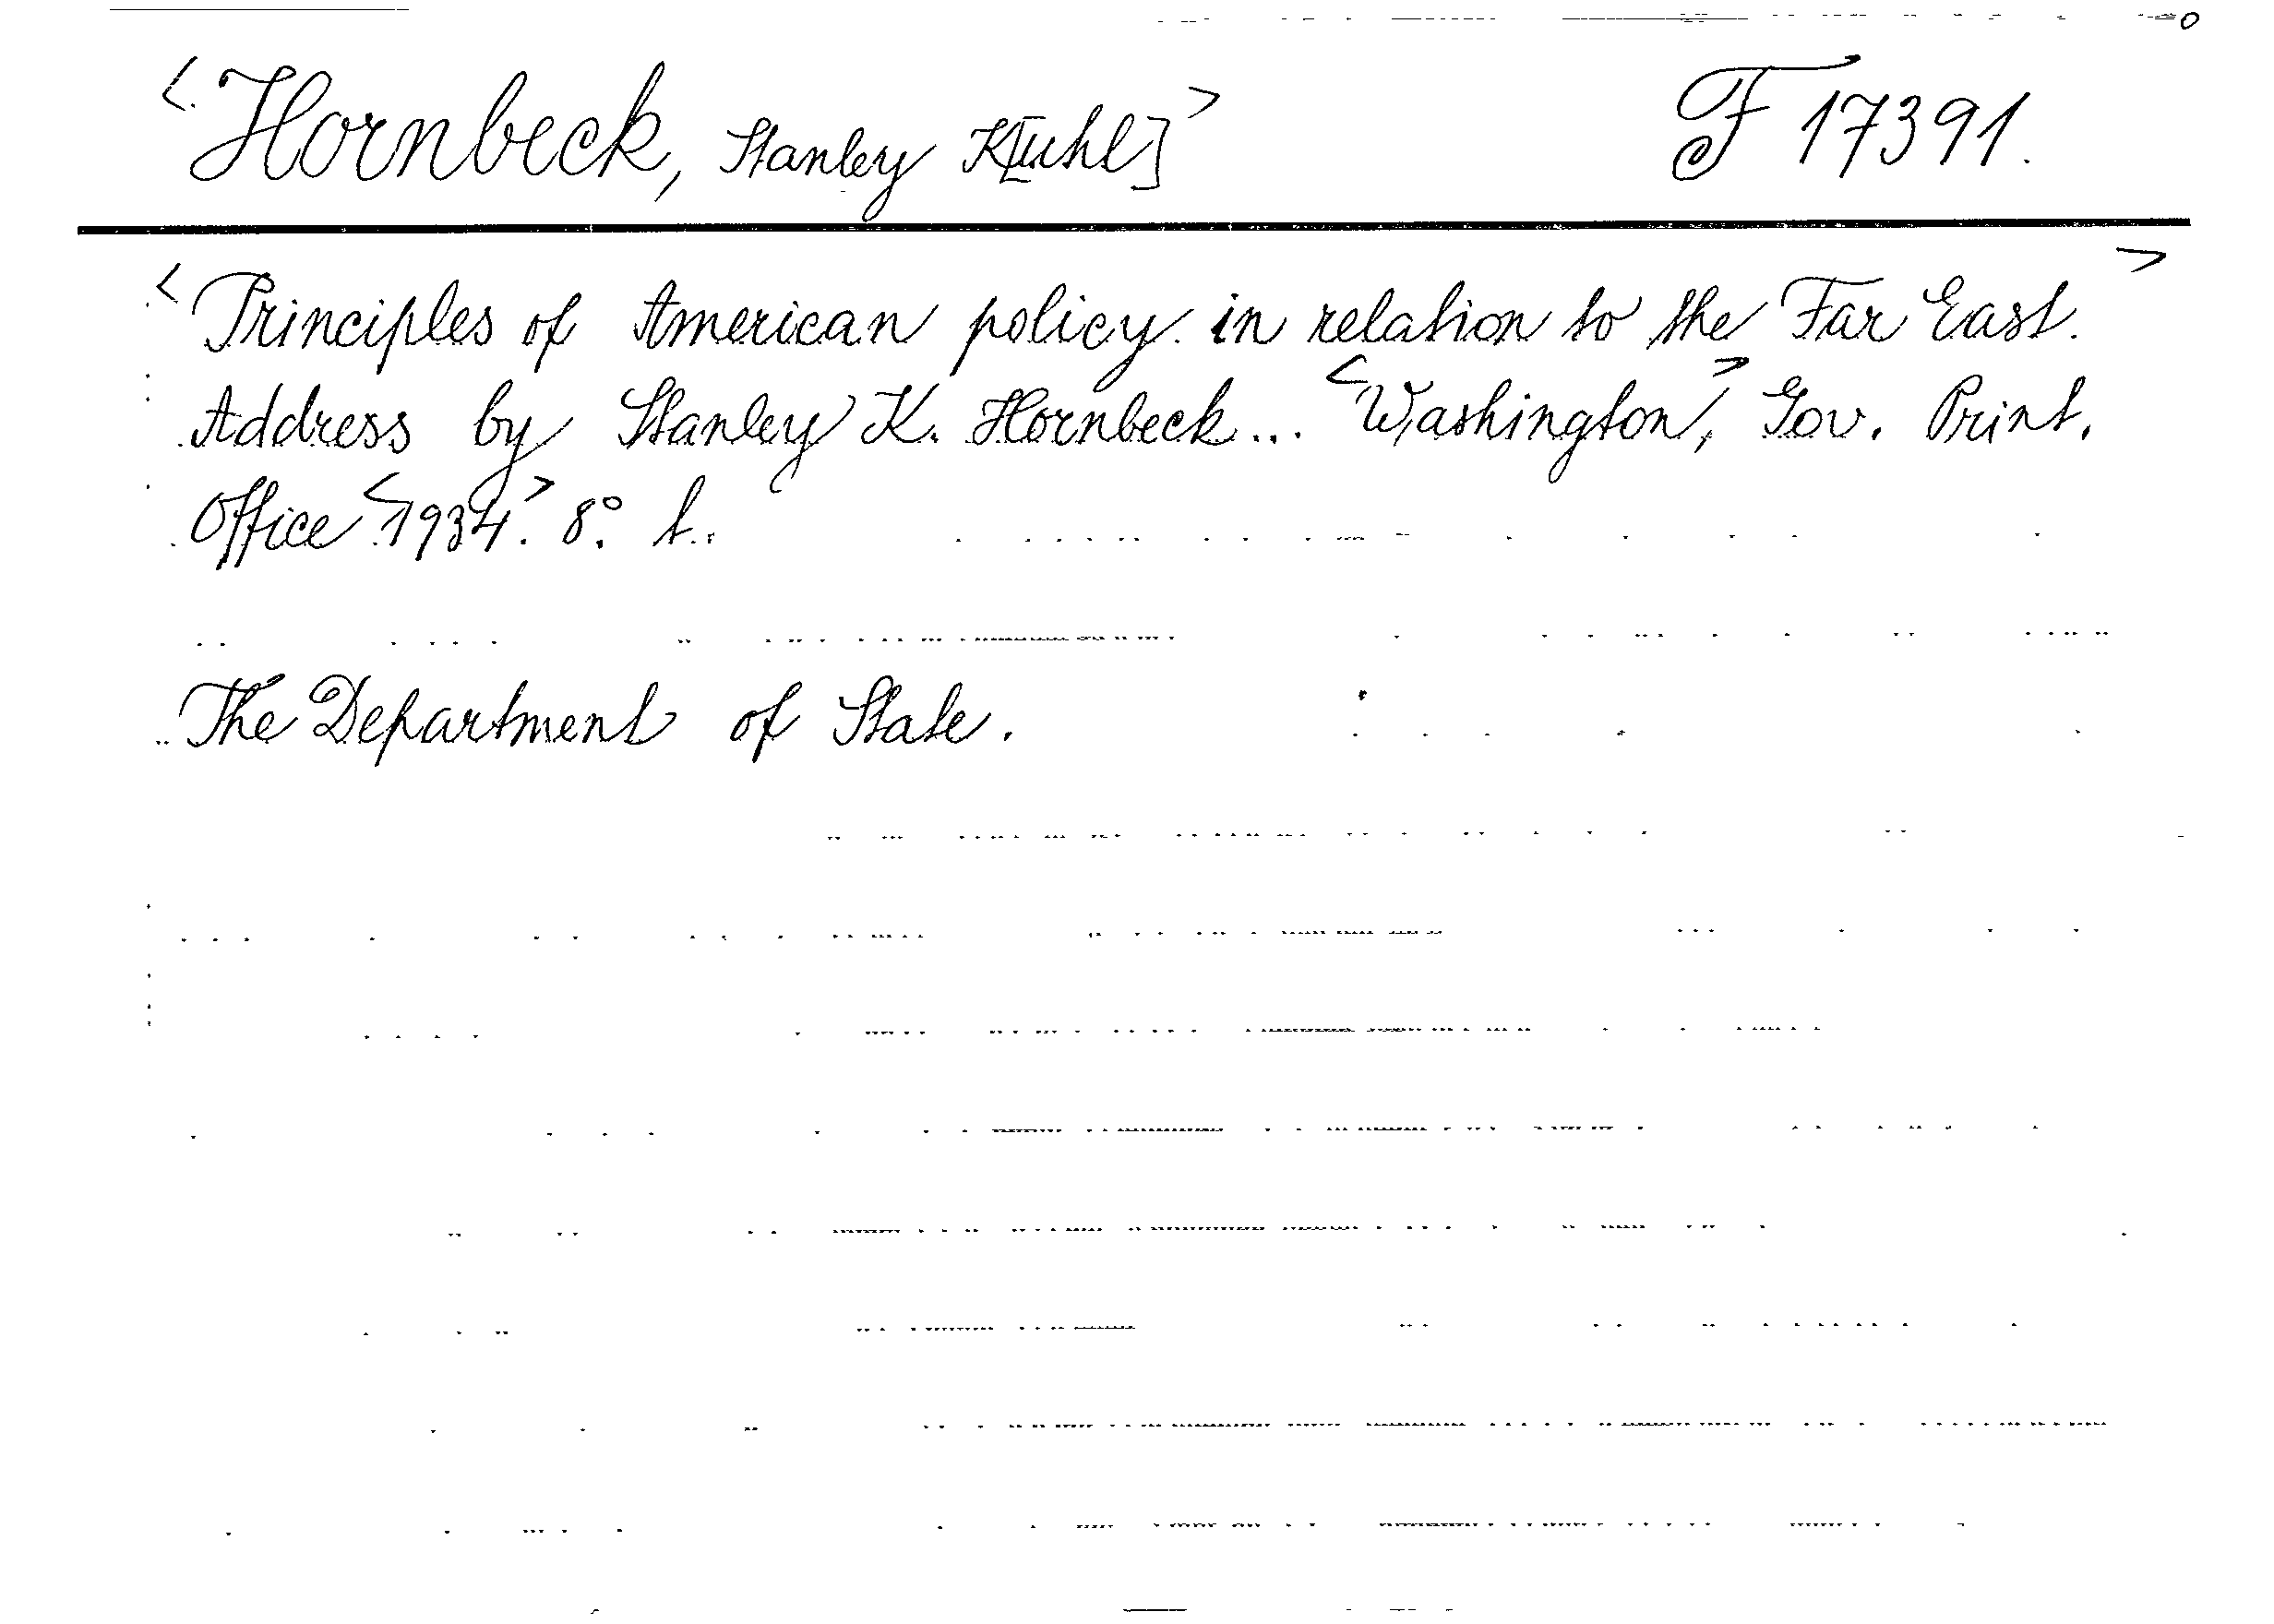 <Hornbeck, Stanley K[uhl]> F 17391.
<Principles of American policy in relation to the Far East.>
Address by Stanley K. Hornbeck... <Washington,> Gov. Print.
Office <1934.> 8° t.
The Department of State.